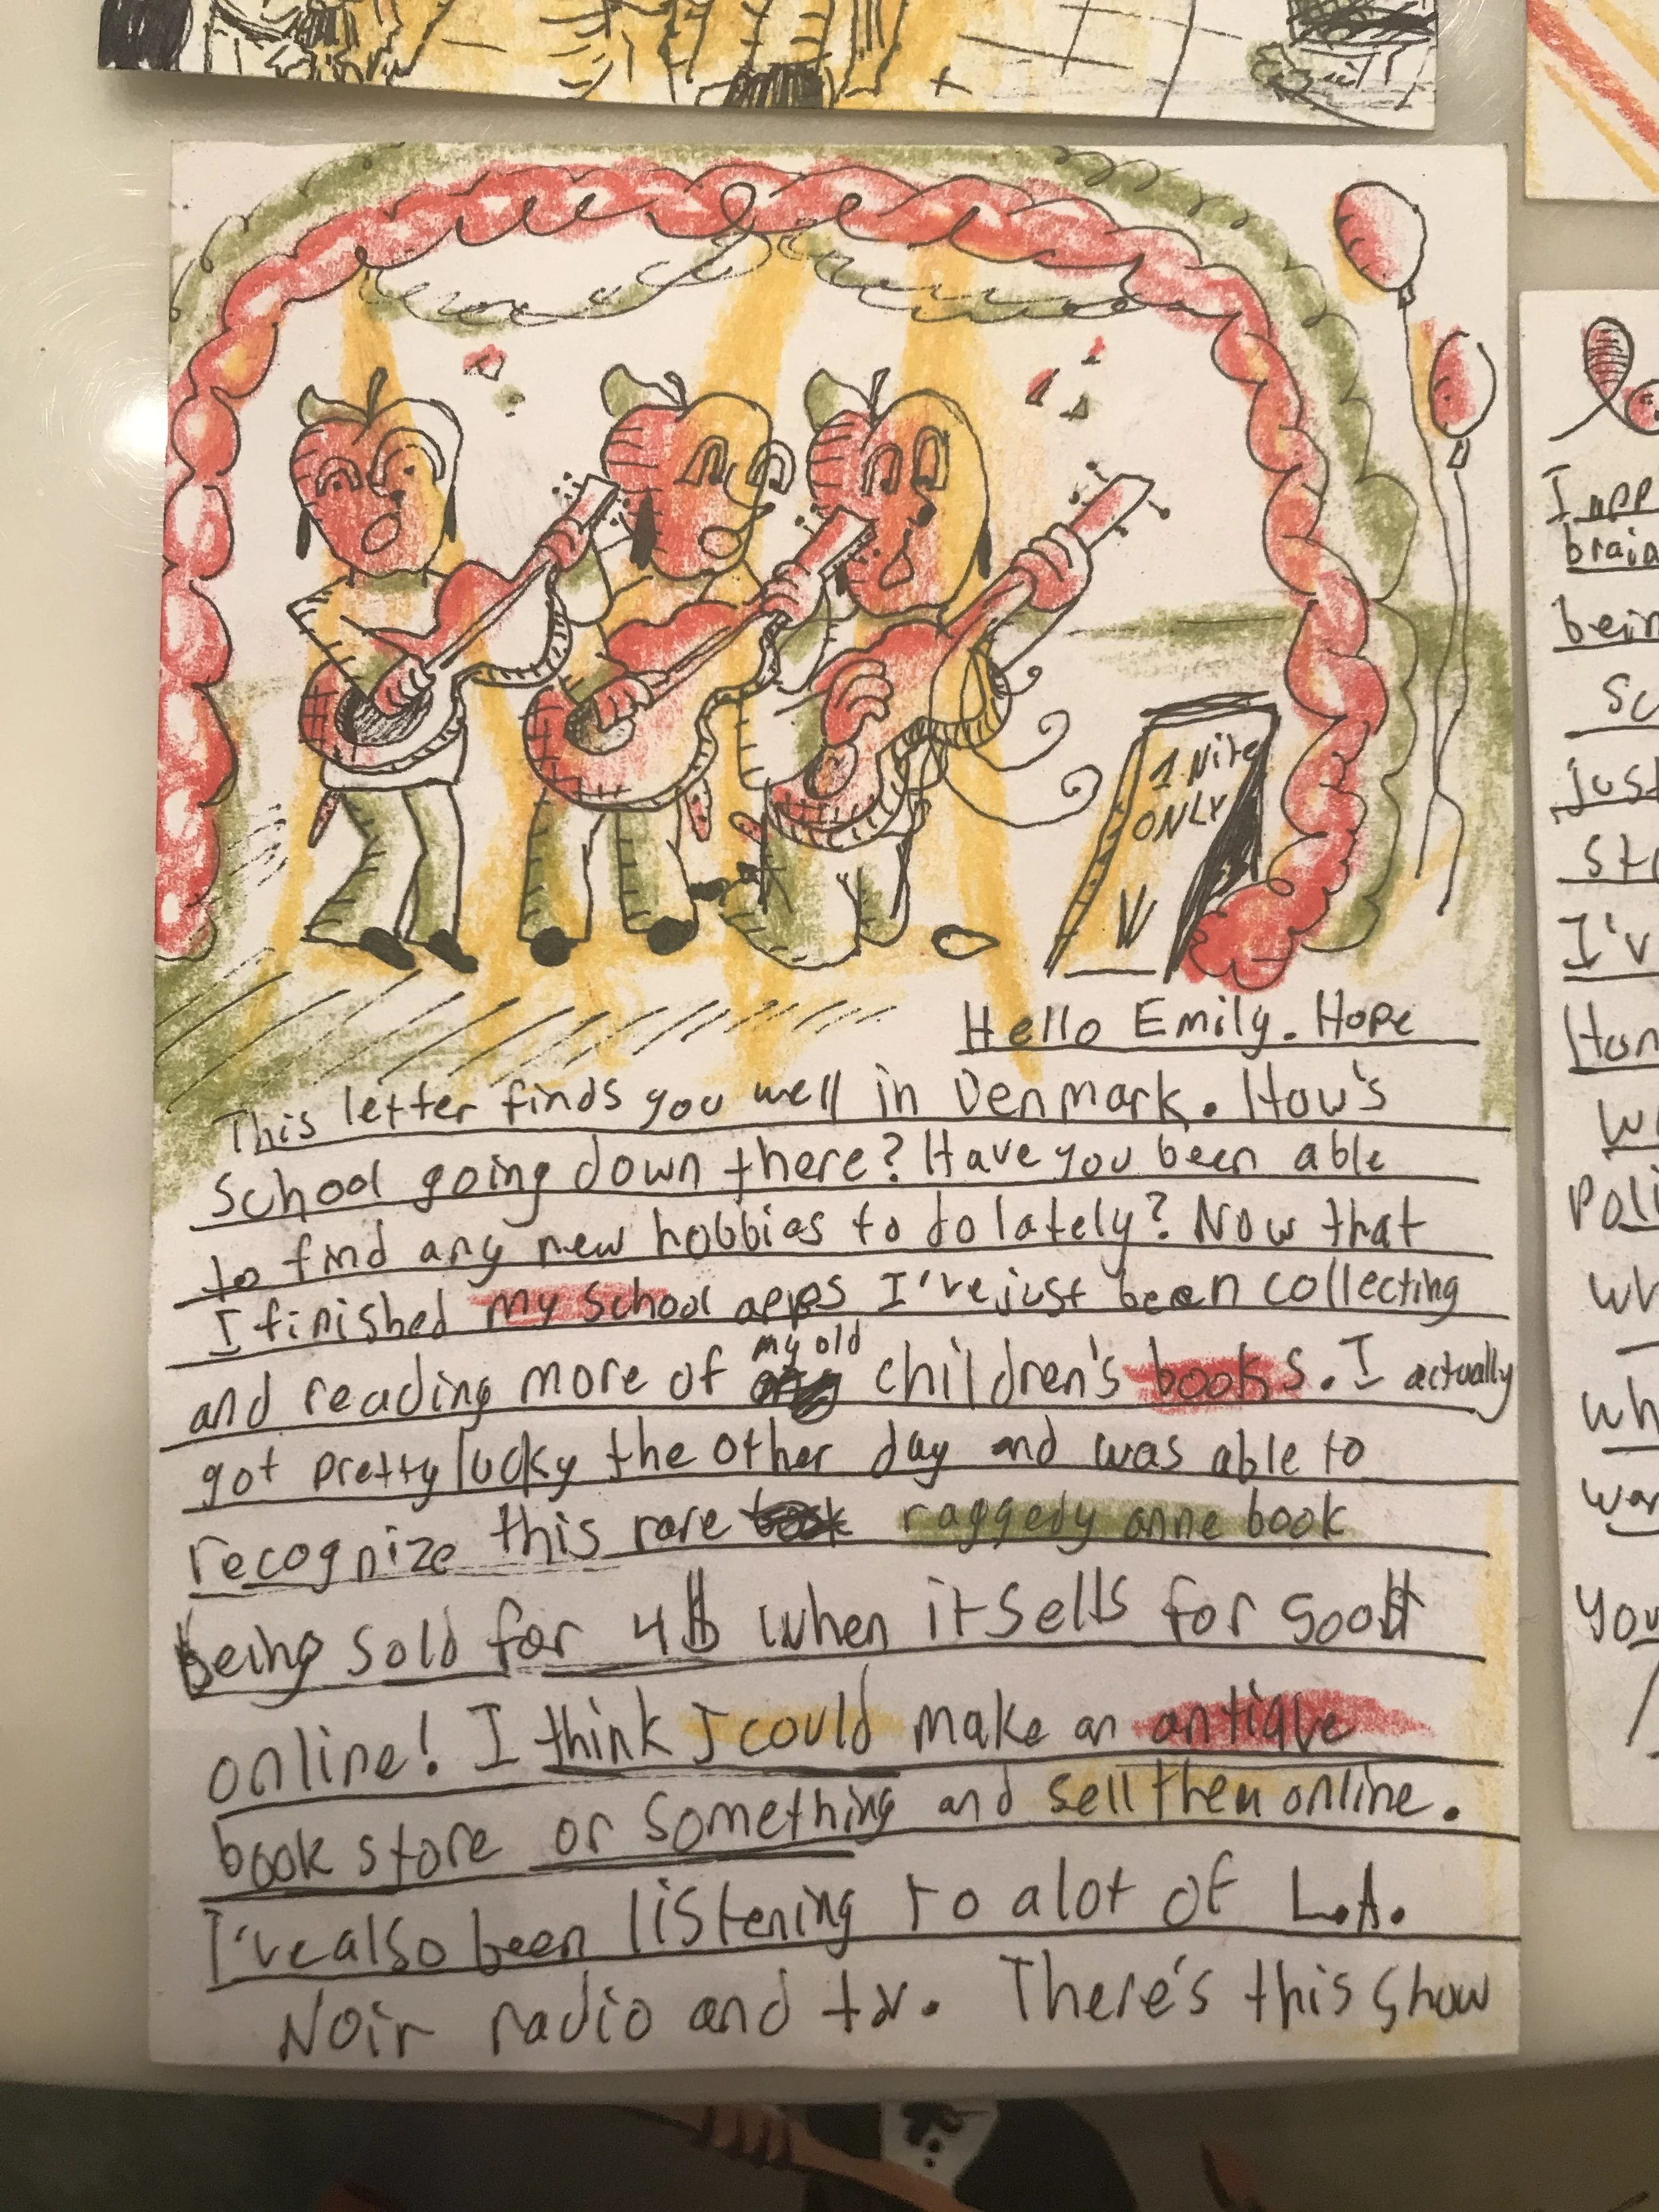 1 Nite
ONLY
Hello Emily. Hope
This letter finds you well in Denmark. How's
school going down there? Have you been able
to find any new hobbies to do lately? Now that
I finished my school apps I've just been collecting
and reading more of my old children's books. I actually
got pretty lucky the other day and was able to
recognize this rare raggedy anne book
being sold for 4$ when it sells for 500$
online! I think I could make an antique
book store or something and sell them online.
I've also been listening to a lot of L.A.
Noir radio and tv. There's this show
I
brain
being
just
I'v
you